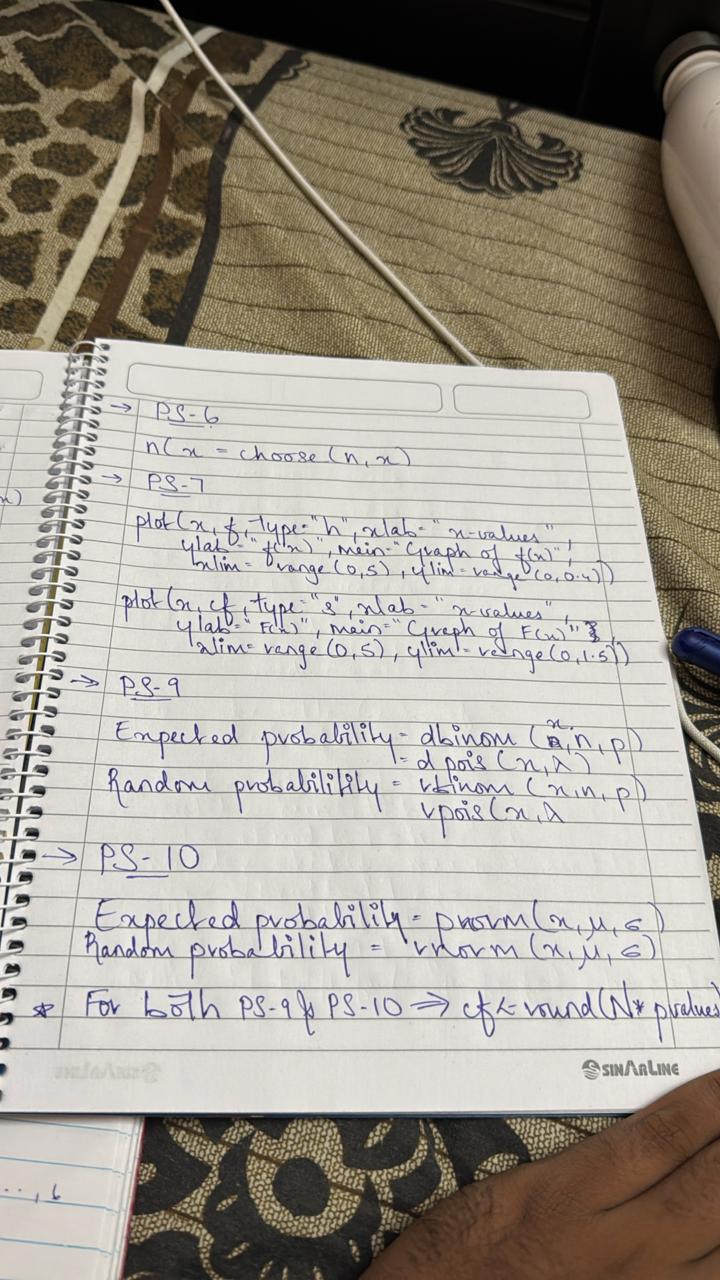 → PS-6
nCx = choose (n, x)
→ PS-7
plot(x, f, type="h", xlab="x-values",
ylab="f(x)", main="Graph of f(x)",
xlim= range(0,5), ylim=range(0,0.4))
plot(x, cf, type="s", xlab="x-values",
ylab="F(x)", main="Graph of F(x)",
xlim=range(0,5), ylim=range(0,1.5))
→ PS-9
Expected probability= dbinom (x, n, p)
= dpois(x, λ)
Random probability = rbinom (x, n, p)
rpois(x, λ
→ PS-10
Expected probability= pnorm(x, μ, σ)
Random probability = rnorm(x, μ, σ)
* For both PS-9 & PS-10 ⇒ cf<-round(N* pvalues)
SINARLINE
x)
..., 6